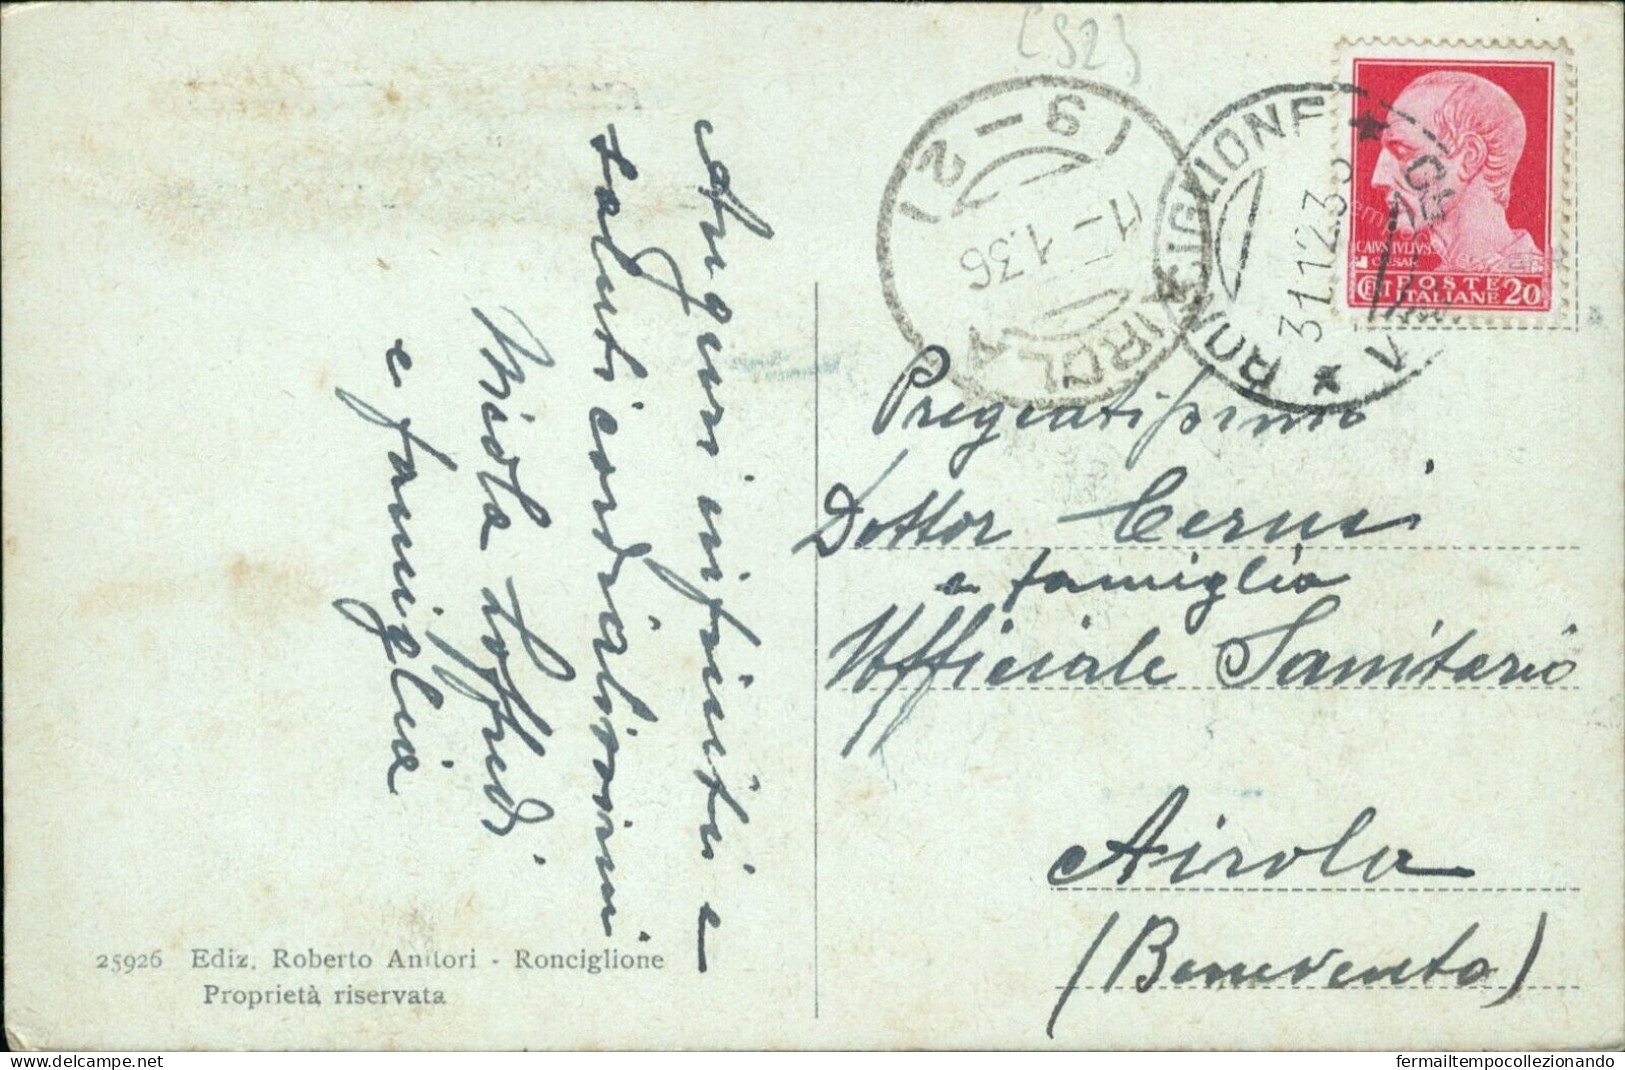 (52)
Auguri infiniti e
saluti cordialissimi
Nicola Loffredi
e famiglia
19-21
1-1.36
AIROLA
RONCIGLIONE
31.12.3
CAIVS IVLIVS
CAESAR
POSTE
ITALIANE 20
Pregiatissimo
Dottor Cerui
e famiglia
Ufficiale Sanitario
Airola
(Benevento)
25926 Ediz. Roberto Anitori - Ronciglione
Proprietà riservata
delcampe.net
fermailtempocollezionando